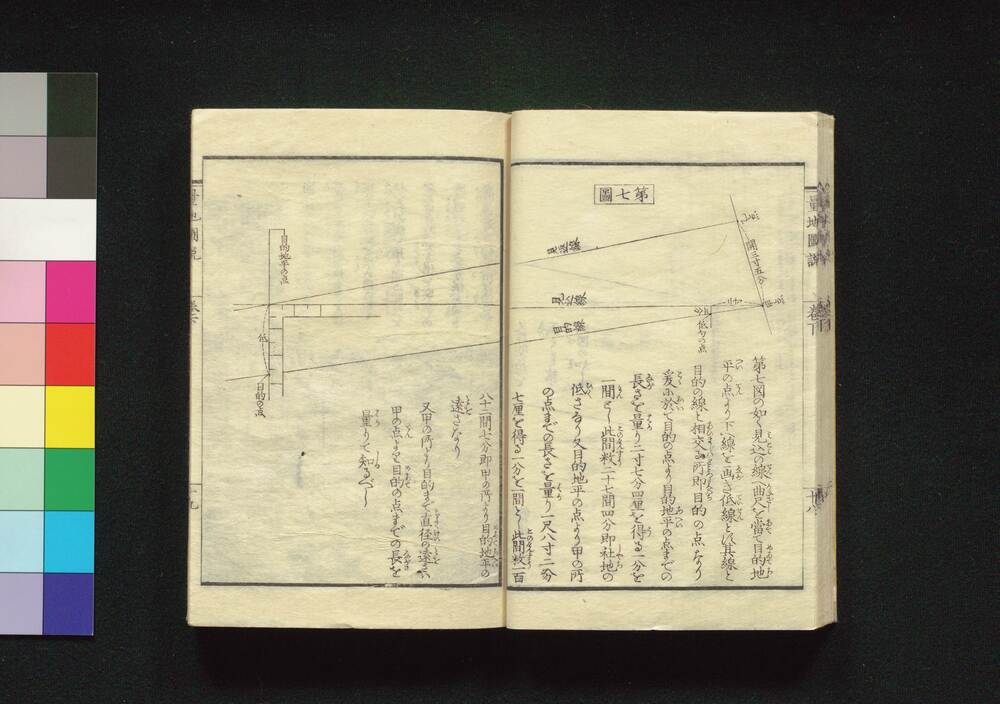 第七圖
見込線
見込線
目的線
開二寸五分
低勾の点
第七図の如く見込の線へ曲尺を當て目的地
平の点より下へ線を画き低線とし其線と
目的の線と相交る所即目的の点なり
爰に於て目的の点より目的地平の点までの
長さを量り二寸七分四厘を得る一分を
一間とし此間数二十七間四分即社地の
低さなり又目的地平の点より甲の所
の点までの長さを量り一尺八寸二分
七厘を得る一分を一間とし此間数一百
八十二間七分即甲の所より目的地平の
遠さなり
又甲の所より目的まで直径の遠さハ
甲の点より目的の点までの長を
量りて知るべし
目的地平の点
低
目的の点
量地圖説
巻下
十八